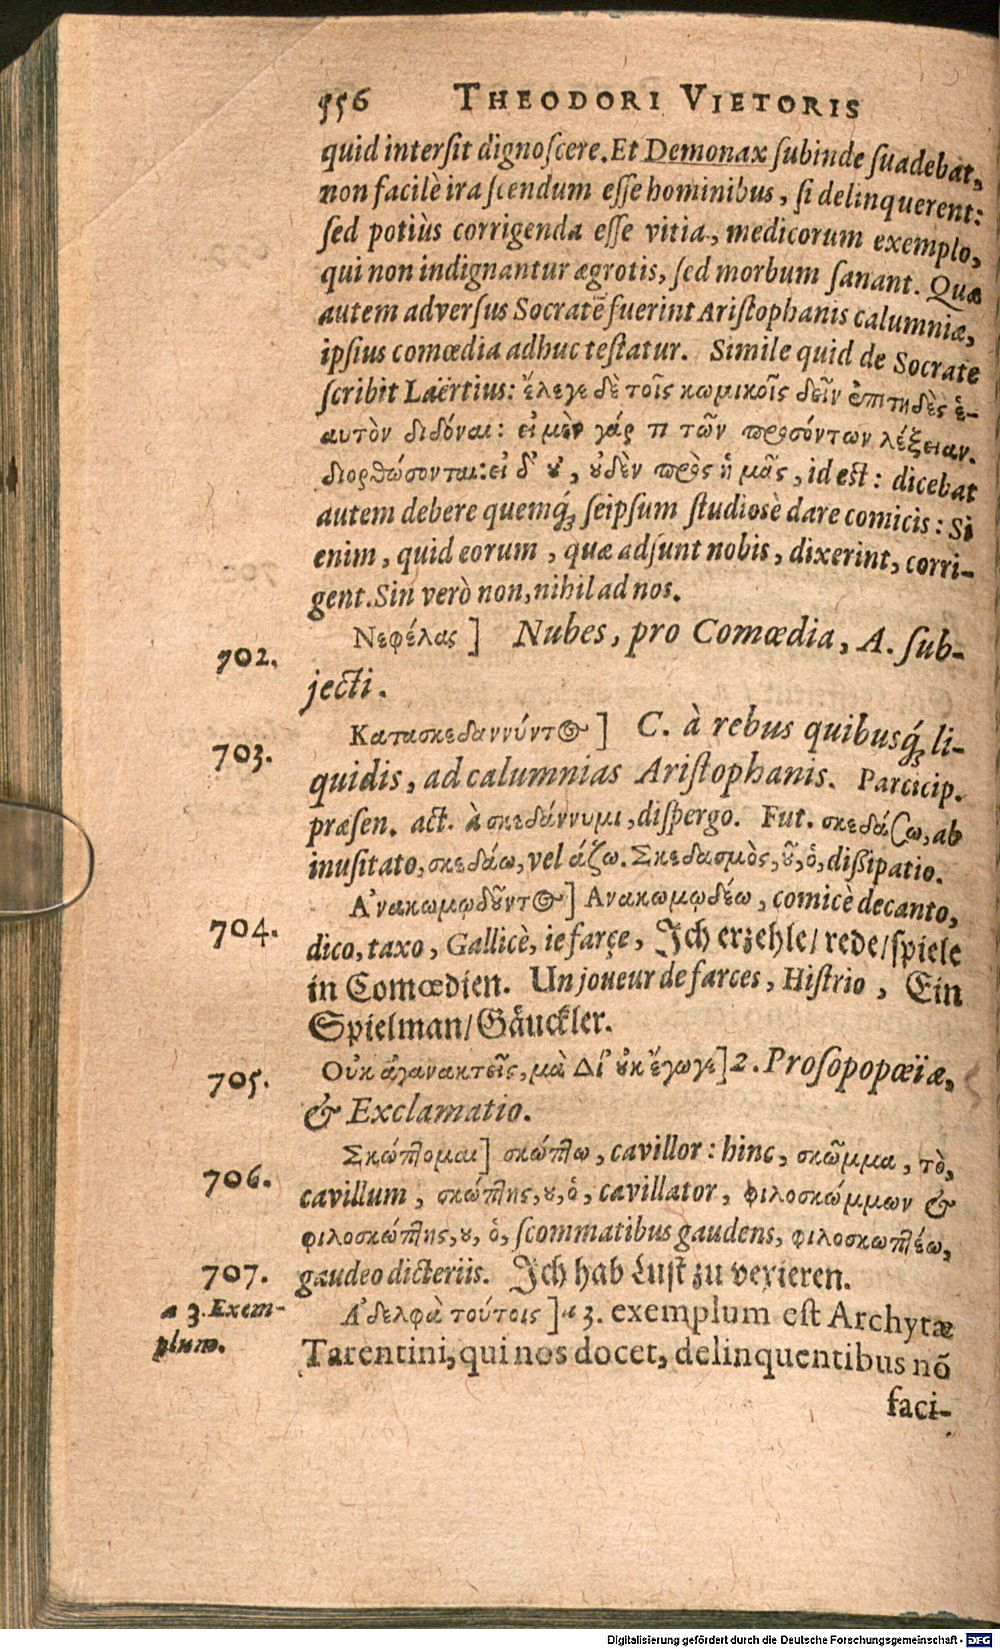 556 THEODORI VIETORIS
quid intersit dignoscere. Et Demonax subinde suadebat,
non facilè irascendum esse hominibus, si delinquerent:
sed potiùs corrigenda esse vitia, medicorum exemplo,
qui non indignantur ægrotis, sed morbum sanant. Quæ
autem adversus Socratē fuerint Aristophanis calumniæ,
ipsius comœdia adhuc testatur. Simile quid de Socrate
scribit Laërtius: ἔλεγε δὲ τοῖς κωμικοῖς δεῖν ἐπιτηδὲς ἑ-
αυτὸν διδόναι: εἰ μὲν γάρ τι τῶν προσόντων λέξειαν.
διορθώσονται: εἰ δ' ȣ, ȣδὲν πρὸς ἡμᾶς, id est: dicebat
autem debere quemq́; seipsum studiosè dare comicis: Si
enim, quid eorum, quæ adsunt nobis, dixerint, corri-
gent. Sin verò non, nihil ad nos.
702. Νεφέλας] Nubes, pro Comœdia, A. sub-
jecti.
703. Κατασκεδαννύντος] C. à rebus quibusq́; li-
quidis, ad calumnias Aristophanis. Parcicip.
præsen. act. à σκεδάννυμι, dispergo. Fut. σκεδάζω, ab
inusitato, σκεδάω, vel άζω. Σκεδασμὸς, ȣ͂, ὁ, dissipatio.
704. Ἀνακωμῳδȣ͂ντος] Ανακωμῳδέω, comicè decanto,
dico, taxo, Gallicè, ie farçe, Ich erzehle/ rede/ spiele
in Comœdien. Un joueur de farces, Histrio, Ein
Spielman/ Gäuckler.
705. Οὐκ ἀγανακτεῖς, μὰ Δί' ȣ̓κ ἔγωγε] 2. Prosopopœiæ,
& Exclamatio.
706. Σκώπτομαι] σκώπτω, cavillor: hinc, σκῶμμα, τὸ,
cavillum, σκώπτης, ȣ, ὁ, cavillator, φιλοσκώμμων &
φιλοσκώπτης, ȣ, ὁ, scommatibus gaudens, φιλοσκωπτέω,
707. gaudeo dicteriis. Ich hab Lust zu vexieren.
a 3. Exem- Ἀδελφὰ τούτοις] a 3. exemplum est Archytæ
plum. Tarentini, qui nos docet, delinquentibus nō
faci-
Digitalisierung gefördert durch die Deutsche Forschungsgemeinschaft - DFG